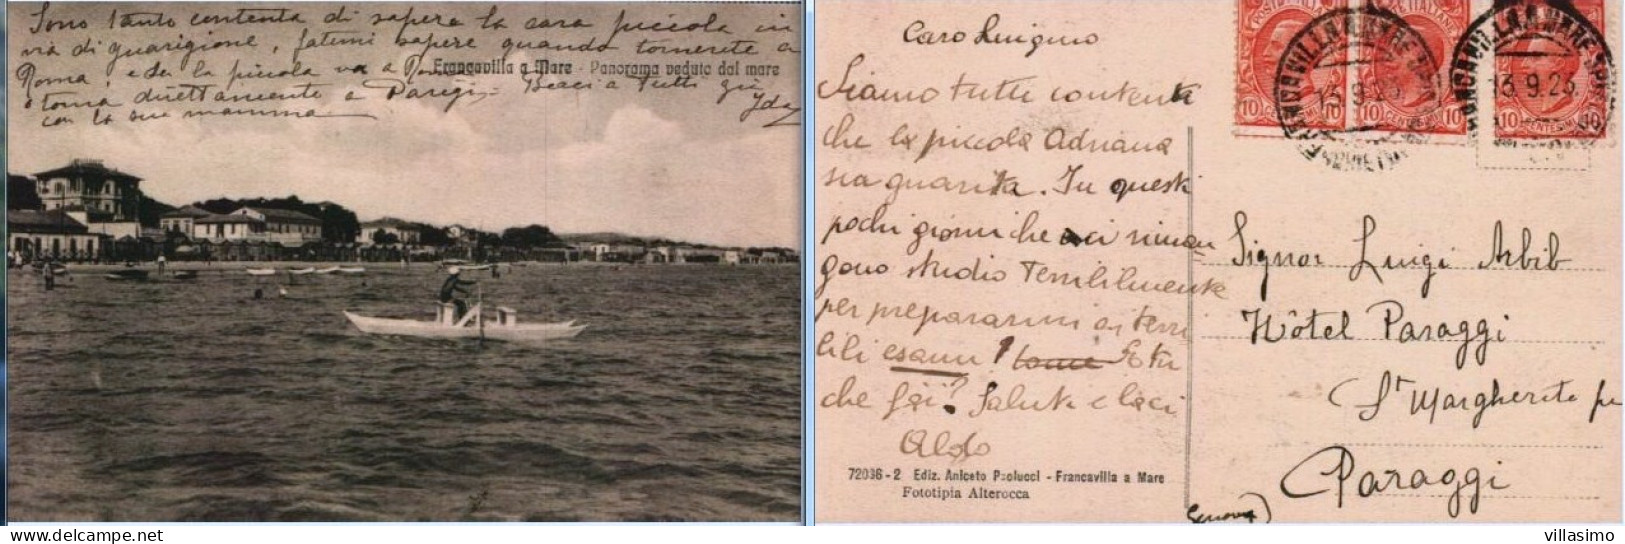 Sono tanto contenta di sapere la cara piccola in
via di guarigione, fatemi sapere quando tornerete a
Roma, e se la piccola va a Roma
Francavilla a Mare - Panorama veduto dal mare
o torna direttamente a Parigi. Baci a tutti
Ida
con la sua mamma.
Caro Luigino
Siamo tutti contenti
che la piccola Adriana
sia guarita. In questi
pochi giorni che ci riman
gono studio terribilmente
per prepararmi ai terri
bili esami! E tu
che fai? Saluti e baci
Aldo
72036-2 Ediz. Aniceto Paolucci - Francavilla a Mare
Fototipia Alterocca
POSTE ITALIANE
10 CENTESIMI 10
10 CENTESIMI 10
10 CENTESIMI 10
FRANCAVILLA A MARE
13.9.23
FRANCAVILLA A MARE
13.9.23
Signor Luigi Arbib
Hôtel Paraggi
St Margherita per
Paraggi
(Genova)
villasimo